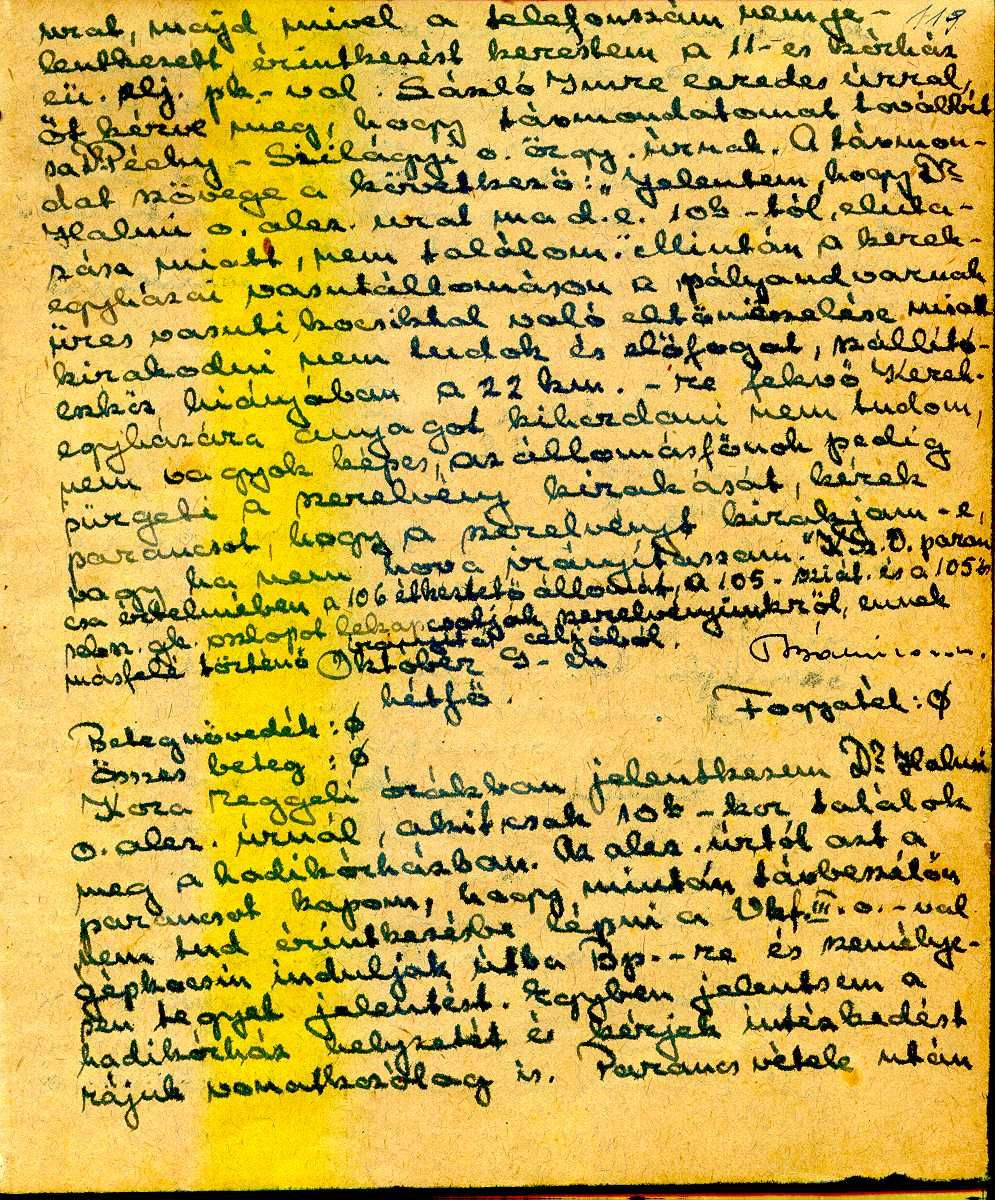 119
urat, majd mivel a telefonszám nem je-
lentkezett érintkezést kerestem a 11-es kórház
eü. elj. pk.-val. László Imre ezredes úrral,
őt kérve meg, hogy távmondatomat továbbít
sa Dr. Péchy-Szilágyi o. őrgy. úrnak. A távmon-
dat szövege a következő: "Jelentem, hogy Dr.
Halmi o. alez. urat ma d.e. 10h-tól, eluta-
zása miatt, nem találom." Miután a kerek-
egyházai vasútállomáson a pályaudvarnak
üres vasuti kocsikkal való eltömeszelése miatt
kirakodni nem tudok és előfogat, szállító-
eszköz hiányában a 22 km.-re fekvő Kerek-
egyházára anyagot kihordani nem tudom,
nem vagyok képes, az állomásfőnök pedig
pürgeti a szerelvény kirakását, kérek
parancsot, hogy a szerelvényt kirakjam-e,
vagy ha nem hova irányítassam." K.Sz.O. paran
csa értelmében a 106 élkeztető állomát, a 105. sziát. és a 105 ös
sebsz. gk. oszlopot lekapcsolják szerelvényünkről, ennek
másfelé történő irányítás céljából.
Október 9-én
hétfő.
Fogyaték: Ø
Betegnövedék: Ø
Összes beteg: Ø
Kora reggeli órákban jelentkezem Dr. Halmi
o. alez. úrnál, akit csak 10h-kor találok
meg a hadikórházban. Az alez. úrtól azt a
parancsot kapom, hogy miután távbeszélőn
nem tud érintkezésbe lépni a Vkf. III. o.-val
gépkocsin induljak útba Bp.-re és személye-
sen tegyek jelentést. Egyben jelentsem a
hadikórház helyzetét és kérjek intézkedést
rájuk vonatkozólag is. Parancs vétele után